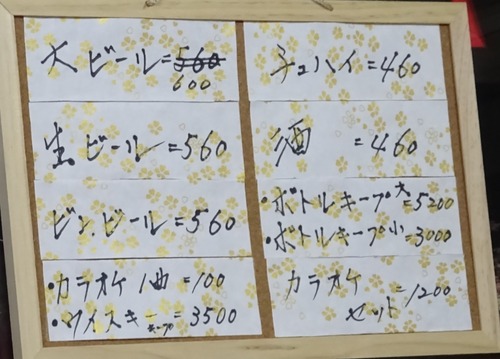 大ビール=560
600
生ビール=560
ビン.ビール=560
・カラオケ1曲=100
・ウイスキーキープ=3500
チュハイ=460
酒=460
・ボトルキープ大=5200
・ボトルキープ小=3000
カラオケ
セット=1200